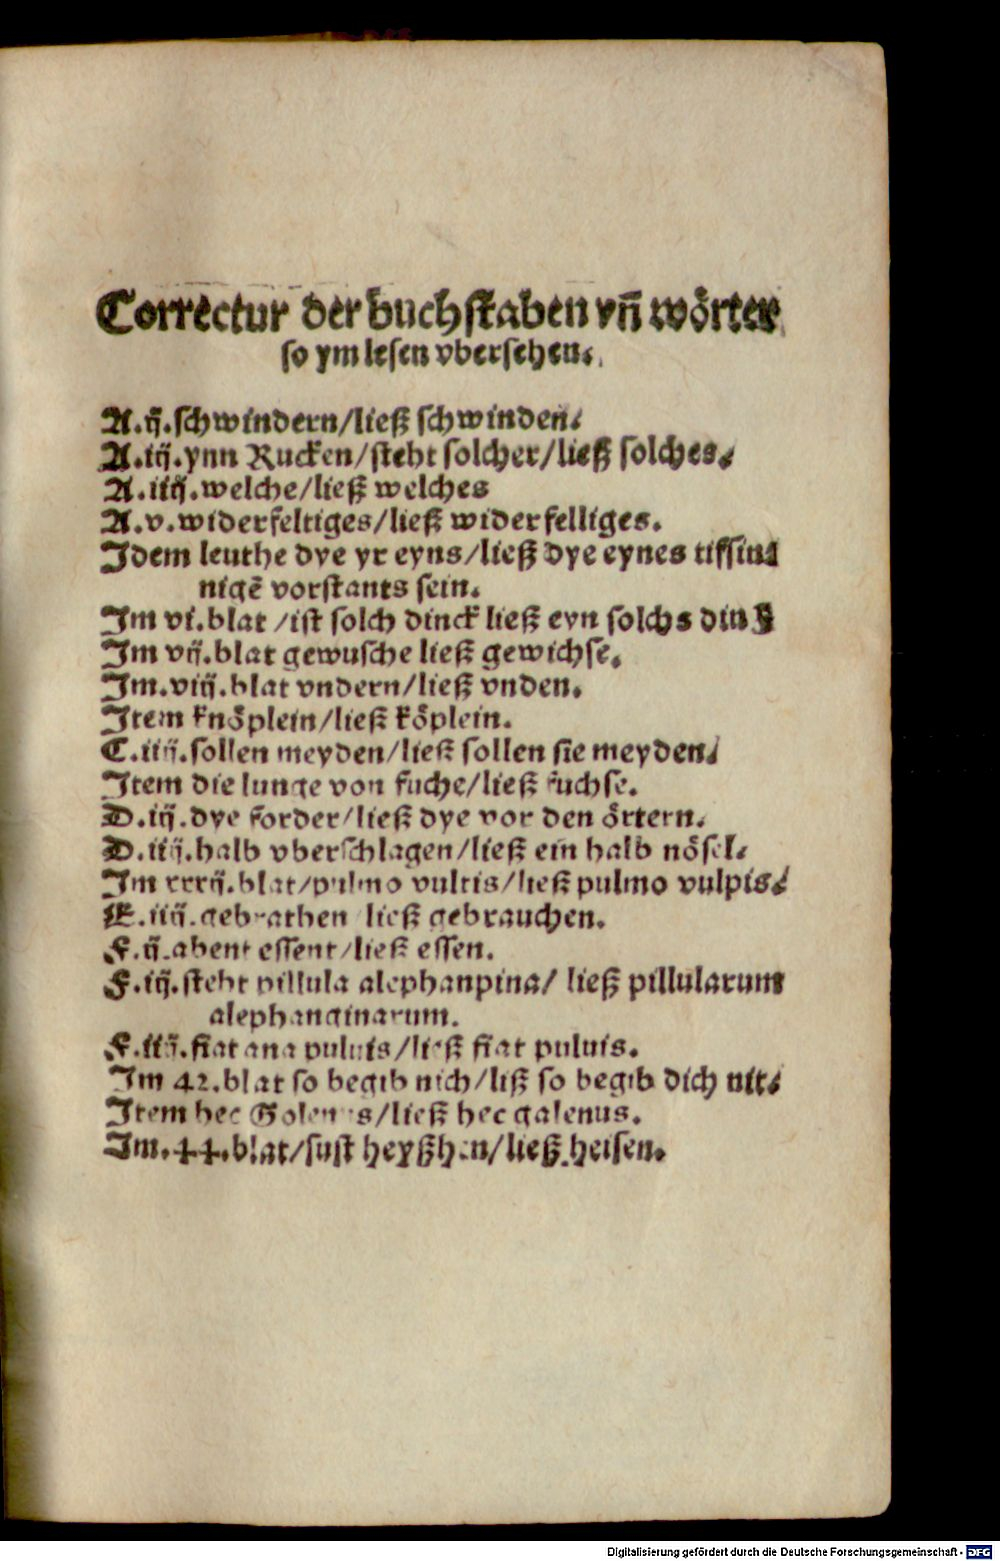 Correctur der buchstaben vñ wörter
so ym lesen vbersehen.
A.ij.schwindern/ließ schwinden.
A.iij.ynn Rucken/steht solcher/ließ solches.
A.iiij.welche/ließ welches
A.v.widerfeltiges/ließ widerfelliges.
Idem leuthe dye yr eyns/ließ dye eynes tiffsin
nigē vorstants sein.
Im vi.blat /ist solch dinck ließ eyn solchs
Im vij.blat gewusche ließ gewichse.
Im.viij.blat vndern/ließ vnden.
Item knöplein/ließ köplein.
C.iiij.sollen meyden/ließ sollen sie meyden.
Item die lunge von fuche/ließ fuchse.
D.iij.dye forder/ließ dye vor den örtern.
D.iiij.halb vberschlagen/ließ ein halb nösel.
Im xxxij.blat/pulmo vultis/ließ pulmo vulpis.
E.iiij.gebrathen ließ gebrauchen.
F.ij.abent essent/ließ essen.
F.iij.steht pillula alephanpina/ ließ pillularum
alephanginarum.
F.iiij.fiat ana puluis/ließ fiat puluis.
Im 42.blat so begib nich/liß so begib dich nit.
Item hec Golenus/ließ hec galenus.
Im.44.blat/sust heyßhen/ließ.heisen.
Digitalisierung gefördert durch die Deutsche Forschungsgemeinschaft - DFG